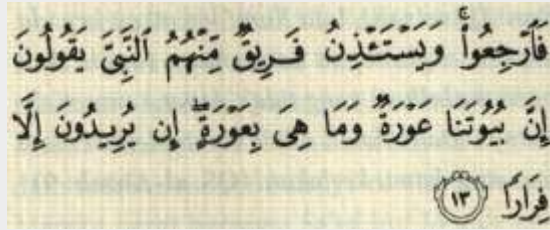 فَٱرْجِعُوا۟ ۚ وَيَسْتَـْٔذِنُ فَرِيقٌ مِّنْهُمُ ٱلنَّبِىَّ يَقُولُونَ
إِنَّ بُيُوتَنَا عَوْرَةٌ وَمَا هِىَ بِعَوْرَةٍ ۖ إِن يُرِيدُونَ إِلَّا
فِرَارًا ١٣